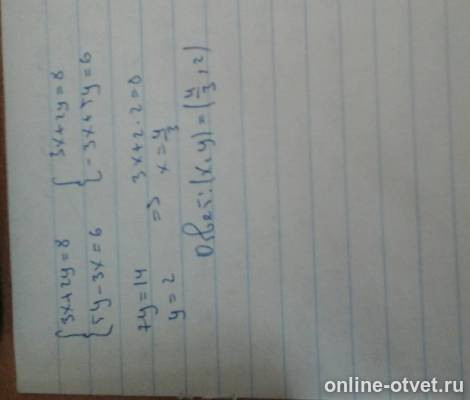 { 3x+2y=8   { 3x+2y=8
{ 5y-3x=6   { -3x+5y=6
7y=14   3x+2·2=8
y=2   =>   x=4/3
Ответ: (x,y)=(4/3, 2)
online-otvet.ru